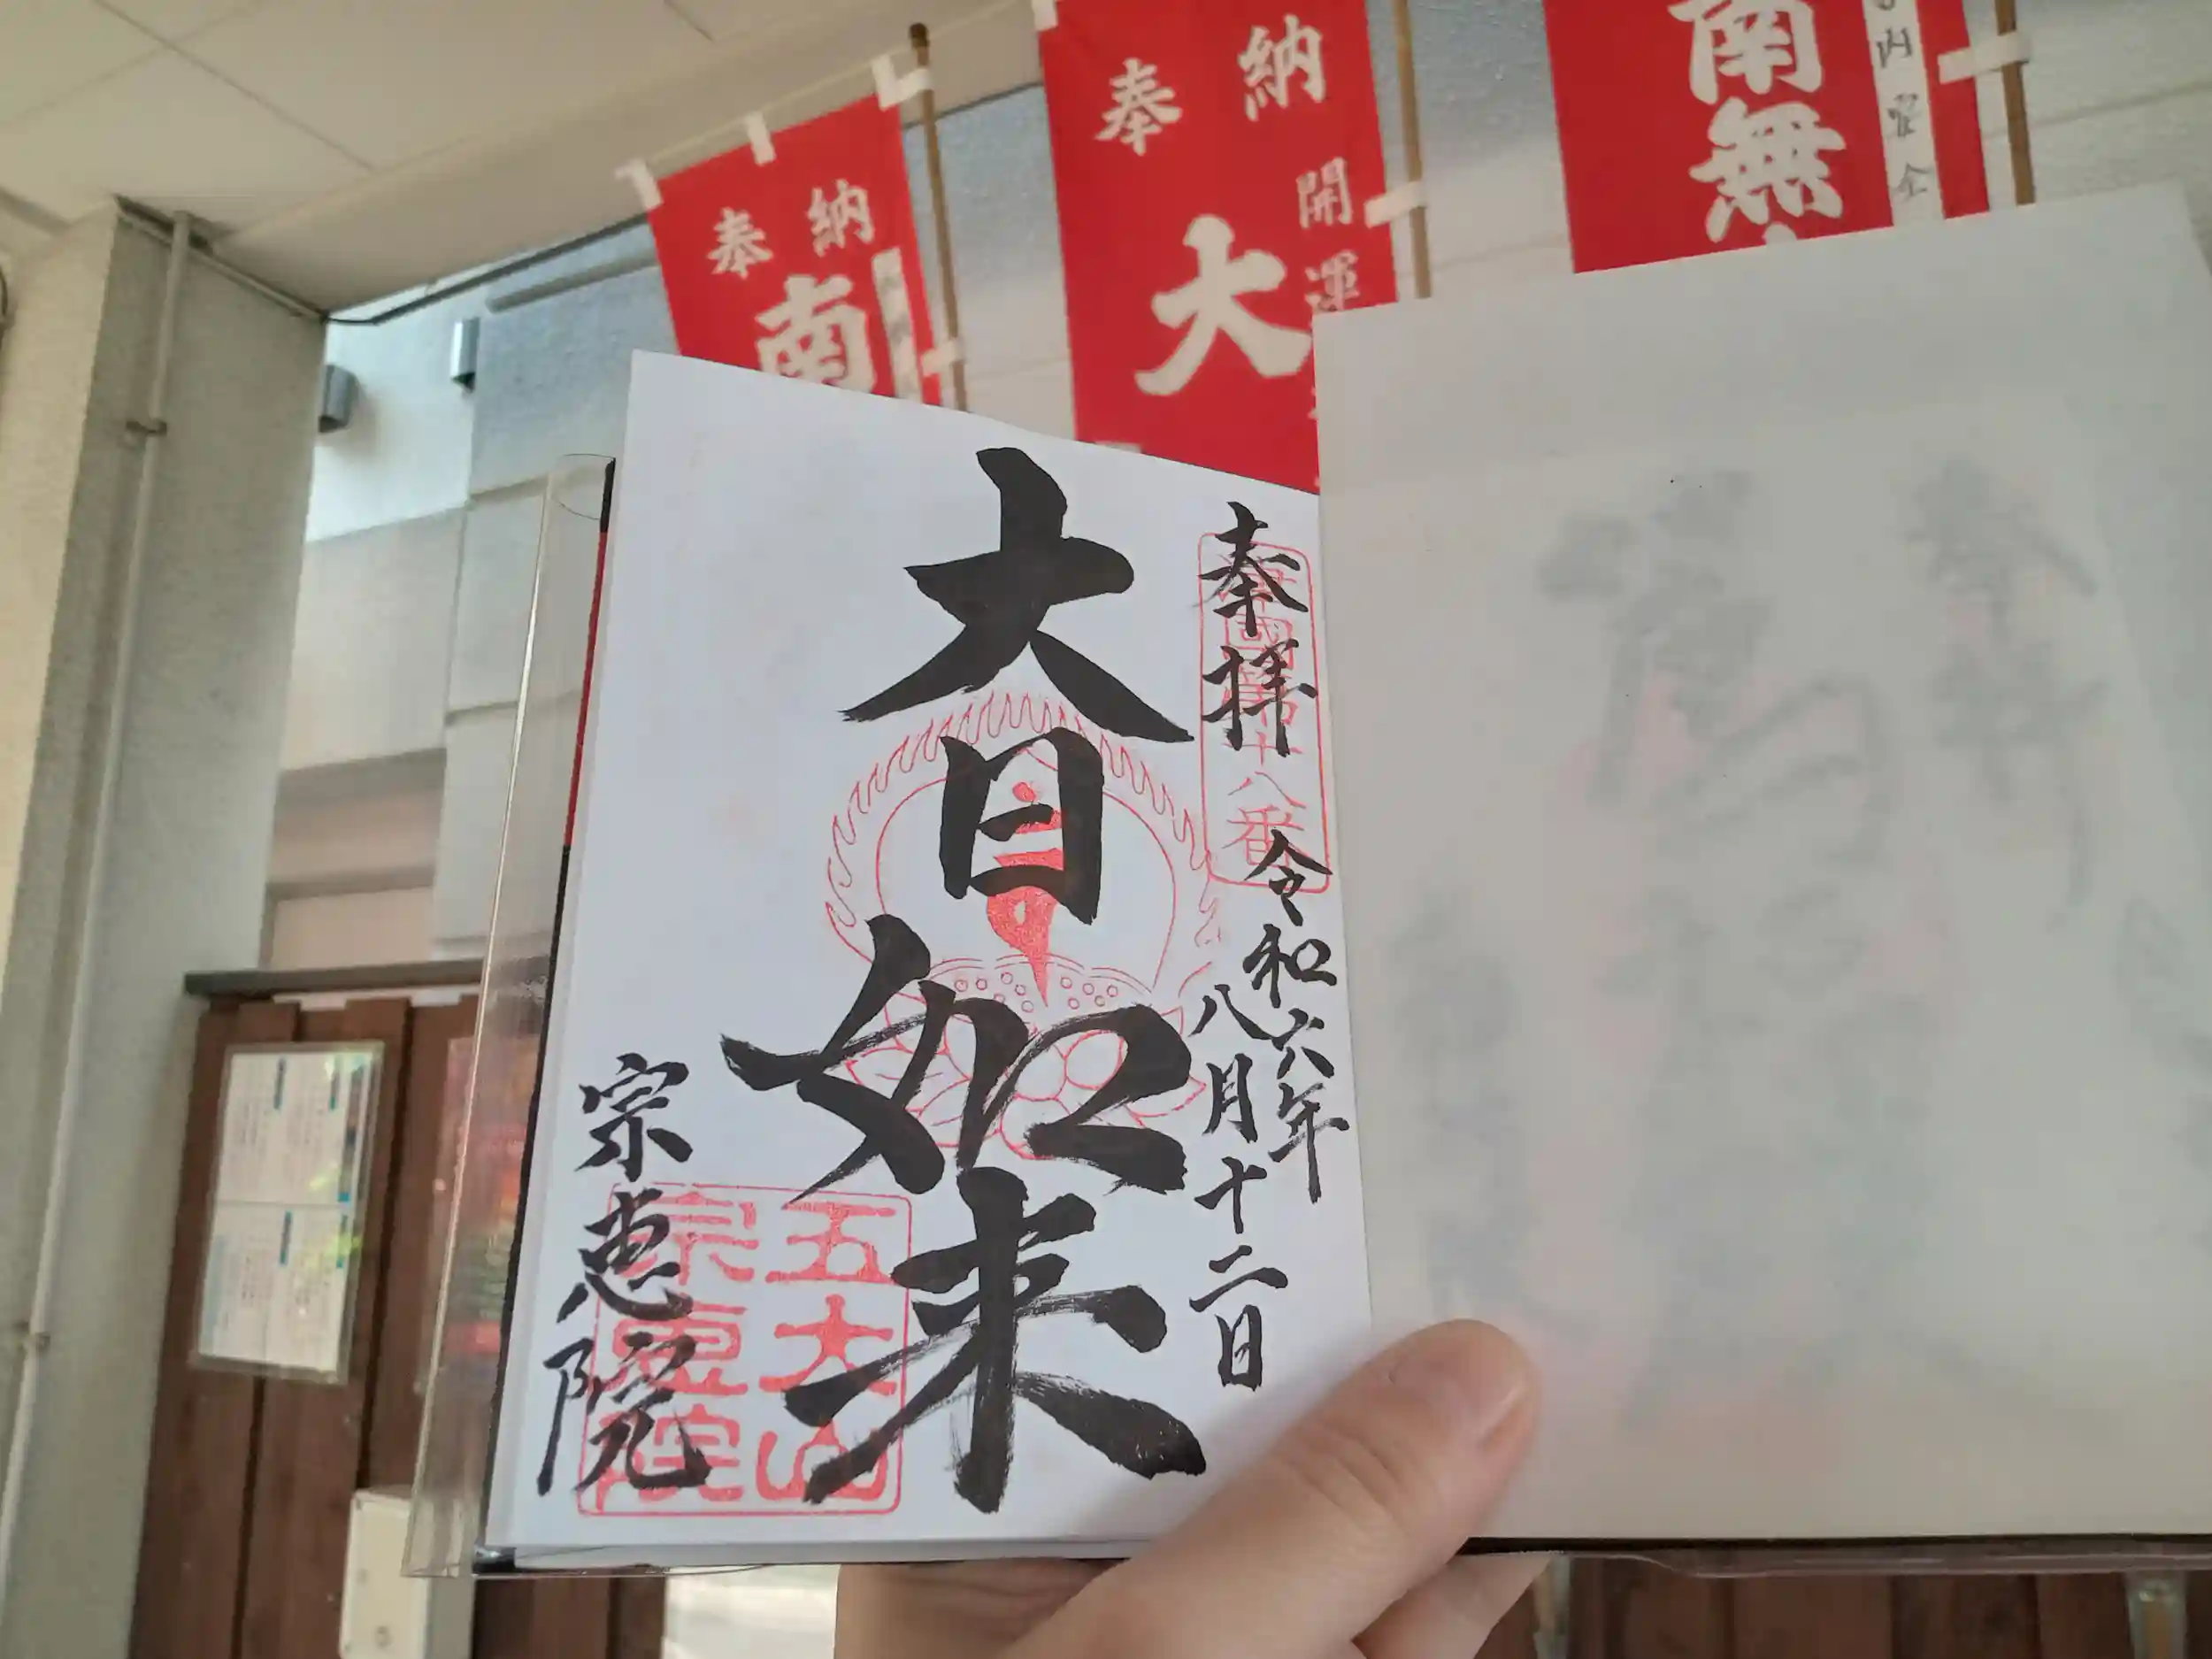 奉納
南
奉納
開運
大
南無
奉拝
令和六年
八月十二日
大日如来
宗恵院
五大山
宗恵院
十八番